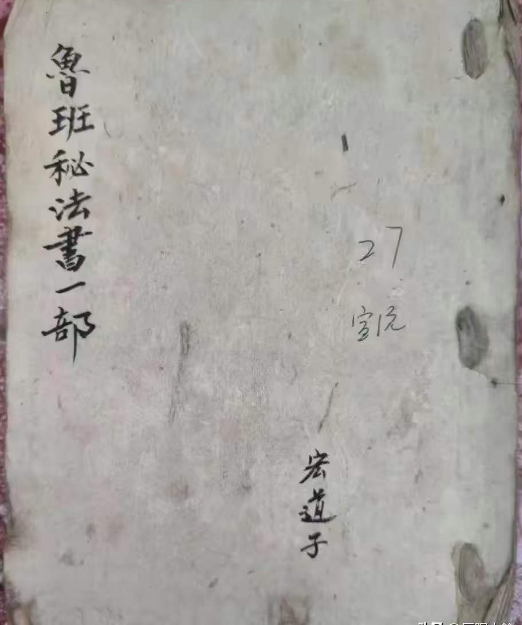 魯班秘法書一部
27
宏道子